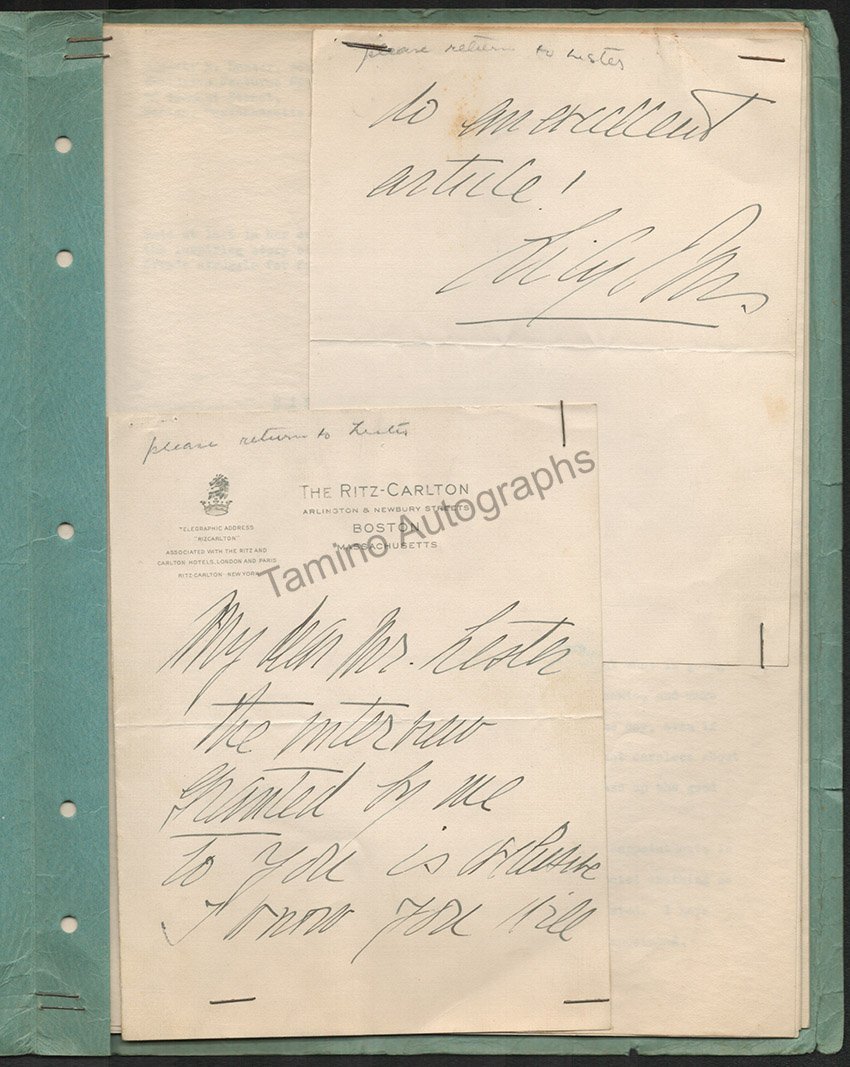 please return to Lester
to an excellent
article!
Lily Pons
please return to Lester
THE RITZ-CARLTON
ARLINGTON & NEWBURY STREETS
BOSTON
MASSACHUSETTS
TELEGRAPHIC ADDRESS
"RIZCARLTON"
ASSOCIATED WITH THE RITZ AND
CARLTON HOTELS, LONDON AND PARIS
RITZ-CARLTON - NEW YORK
Tamino Autographs
My dear Mr. Lester
the interview
granted by me
to you is exclusive
I know you will